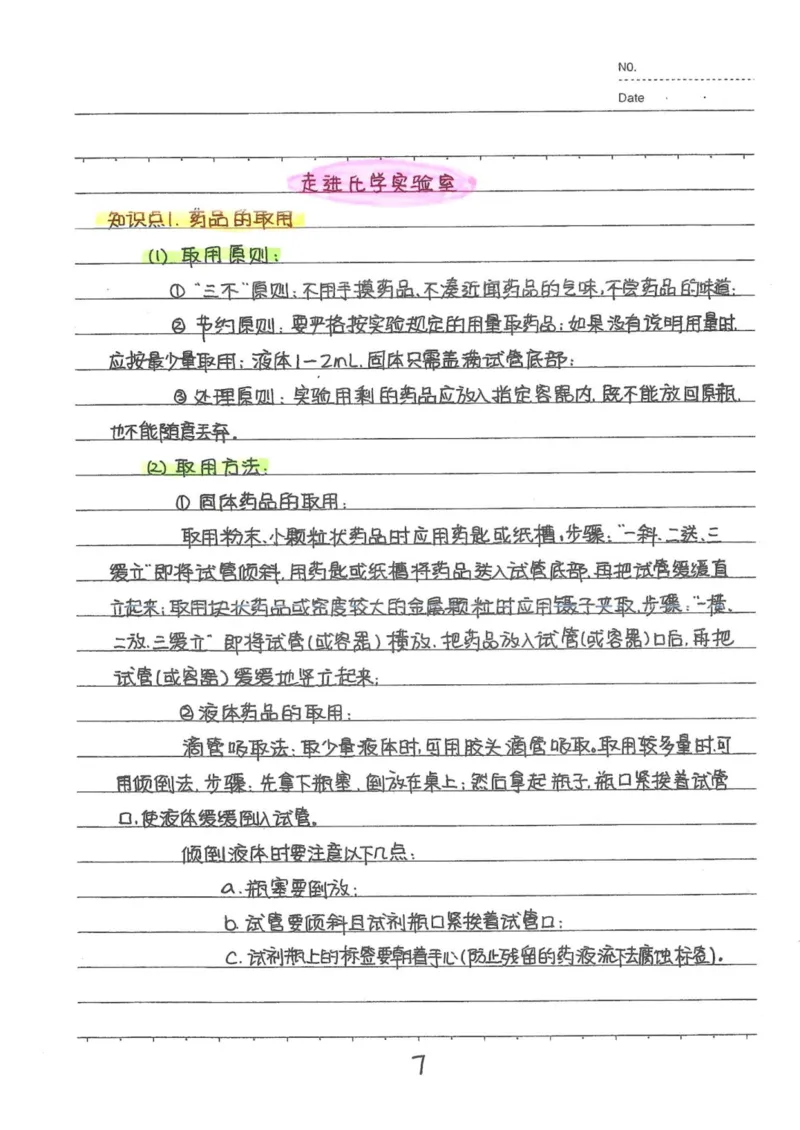 NO.
Date
走进化学实验室
知识点1. 药品的取用
(1) 取用原则:
① "三不"原则:不用手摸药品、不凑近闻药品的气味,不尝药品的味道;
② 节约原则:要严格按实验规定的用量取药品;如果没有说明用量时,
应按最少量取用;液体1-2mL.固体只需盖满试管底部;
③ 处理原则:实验用剩的药品应放入指定容器内,既不能放回原瓶,
也不能随意丢弃.
(2) 取用方法:
① 固体药品的取用:
取用粉末、小颗粒状药品时应用药匙或纸槽,步骤:"一斜、二送、三
缓立"即将试管倾斜,用药匙或纸槽将药品送入试管底部,再把试管缓缓直
立起来;取用块状药品或密度较大的金属颗粒时应用镊子夹取,步骤:"一横、
二放、三缓立"即将试管(或容器)横放,把药品放入试管(或容器)口后,再把
试管(或容器)缓缓地竖立起来;
② 液体药品的取用:
滴管吸取法:取少量液体时,可用胶头滴管吸取。取用较多量时,可
用倾倒法,步骤:先拿下瓶塞,倒放在桌上;然后拿起瓶子,瓶口紧挨着试管
口,使液体缓缓倒入试管。
倾倒液体时要注意以下几点:
a.瓶塞要倒放;
b.试管要倾斜且试剂瓶口紧挨着试管口;
c.试剂瓶上的标签要朝着手心(防止残留的药液流下去腐蚀标签)。
7